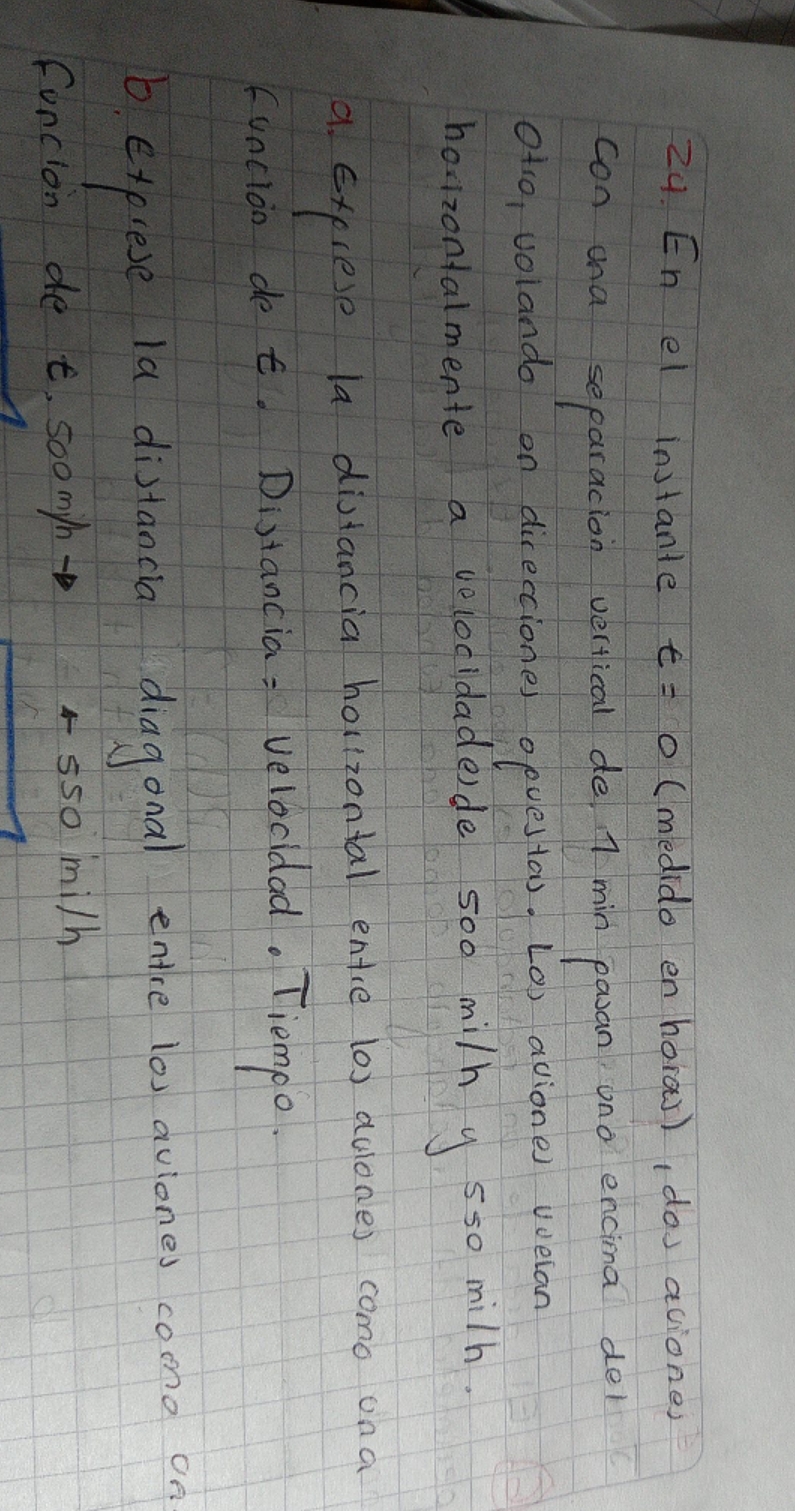 24. En el instante t = 0 (medido en horas), dos aviones
con una separación vertical de 1 min pasan uno encima del
otro, volando en direcciones opuestas. Los aviones vuelan
horizontalmente a velocidades de 500 mi/h y 550 mi/h.
a. Exprese la distancia horizontal entre los aviones como una
función de t. Distancia = Velocidad . Tiempo.
b. Exprese la distancia diagonal entre los aviones como un
función de t. 500 m/h → ← 550 mi/h